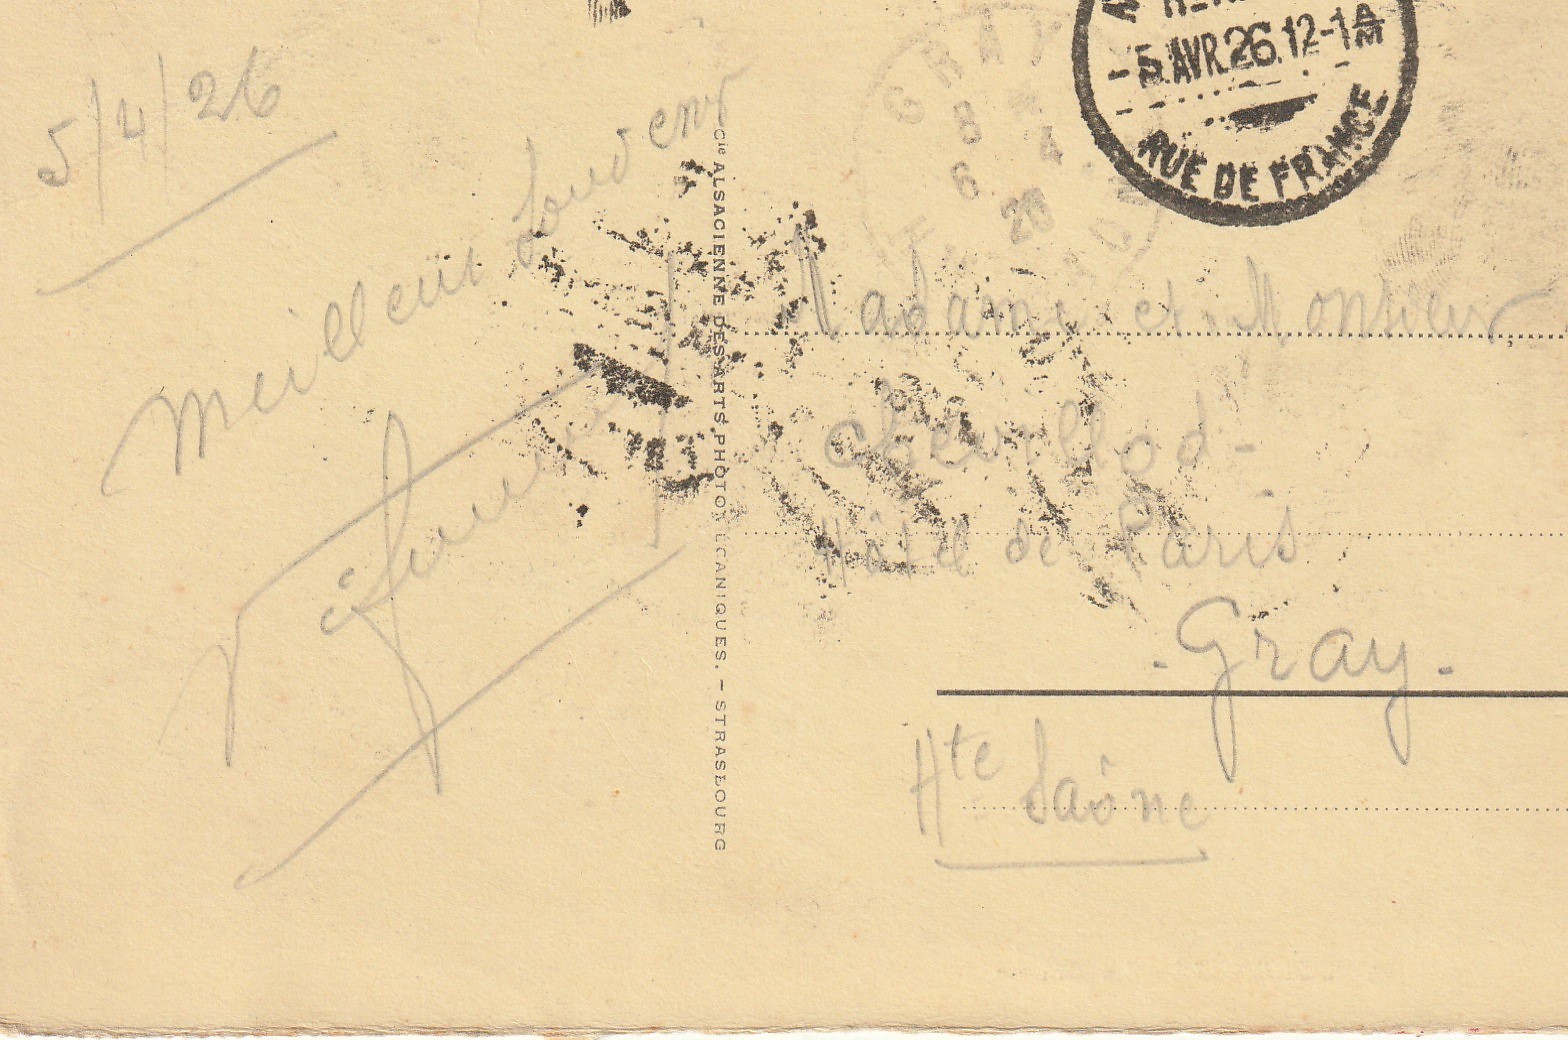 5/4/26
Meilleur Souvenir
- 5.AVR.26.12-1
RUE DE FRANCE
GRAY
8
4
6
26
Madame et Monsieur
Hôtel de Paris
- Gray -
Hte Saône
Cie ALSACIENNE DES ARTS PHOTOMÉCANIQUES. – STRASBOURG